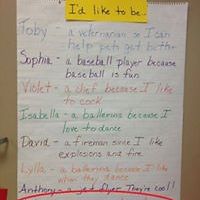 I'd like to be...
Toby - a veternarian so I can
help pets get better
Sophia - a baseball player because
baseball is fun
Violet - a chef because I like
to cook
Isabella - a ballerina because I
love to dance
David - a fireman since I like
explosions and fire
Lylla - a ballerina because I like
when they dance
Anthony - a jet flyer They're cool!